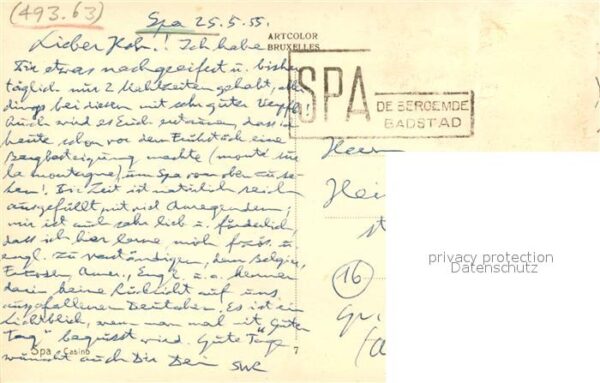 (493.63)
Spa 25.5.55.
ARTCOLOR
BRUXELLES
Lieber Hohn! Ich habe
Dir etwas nachgeeifert u. bisher
täglich nur 2 Mahlzeiten gehabt, aller
dings bei diesen mit sehr guter Verpfl.!
Auch wird es Euch erstaunen, dass ich
heute schon vor dem Frühstück eine
Bergbesteigung machte (monté sur
la montagne), um Spa von oben zu se-
hen! Die Zeit ist natürlich reich
ausgefüllt, mit viel Anregendem;
mir ist auch sehr lieb u. förderlich,
dass ich hier lerne, mich franz. u.
engl. zu verständigen, denn Belgier,
Amer., Engl. u.a. kennen
darin keine Rücksicht auf uns
Deutsche. Es ist ein
Lichtblick, wenn man mal mit "Guten
Tag" begrüsst wird. Gute Tage
wünscht auch Dir Dein
SPA
DE BEROEMDE
BADSTAD
Herrn
Hei
16
Spa Casino
7
privacy protection
Datenschutz